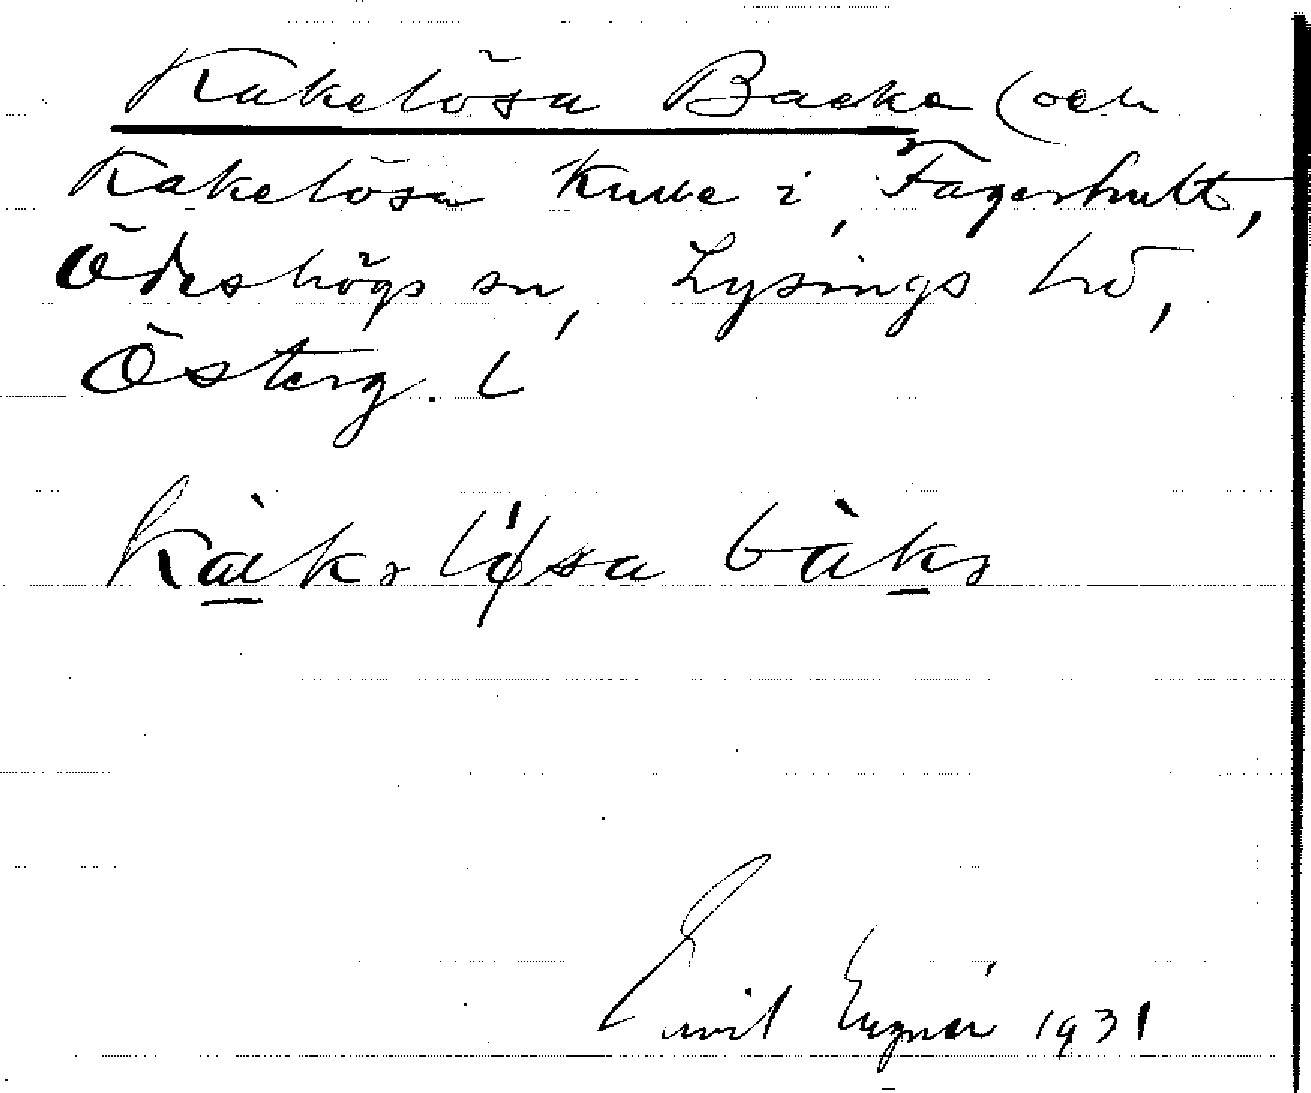 Kakelösa Backe (och
Kakelösa Kulle i, Fagerhult,
Ödeshögs sn, Lysings hd,
Österg. L
lösa
Emil 1931